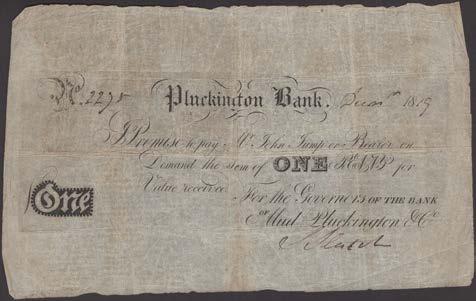 No. 2275 Pluckington Bank. 1819
I Promise to pay Mr. John Jump or Bearer on
Demand the sum of ONE for
Value received
One For the Governors OF THE BANK
OF Mud Pluckington & Co